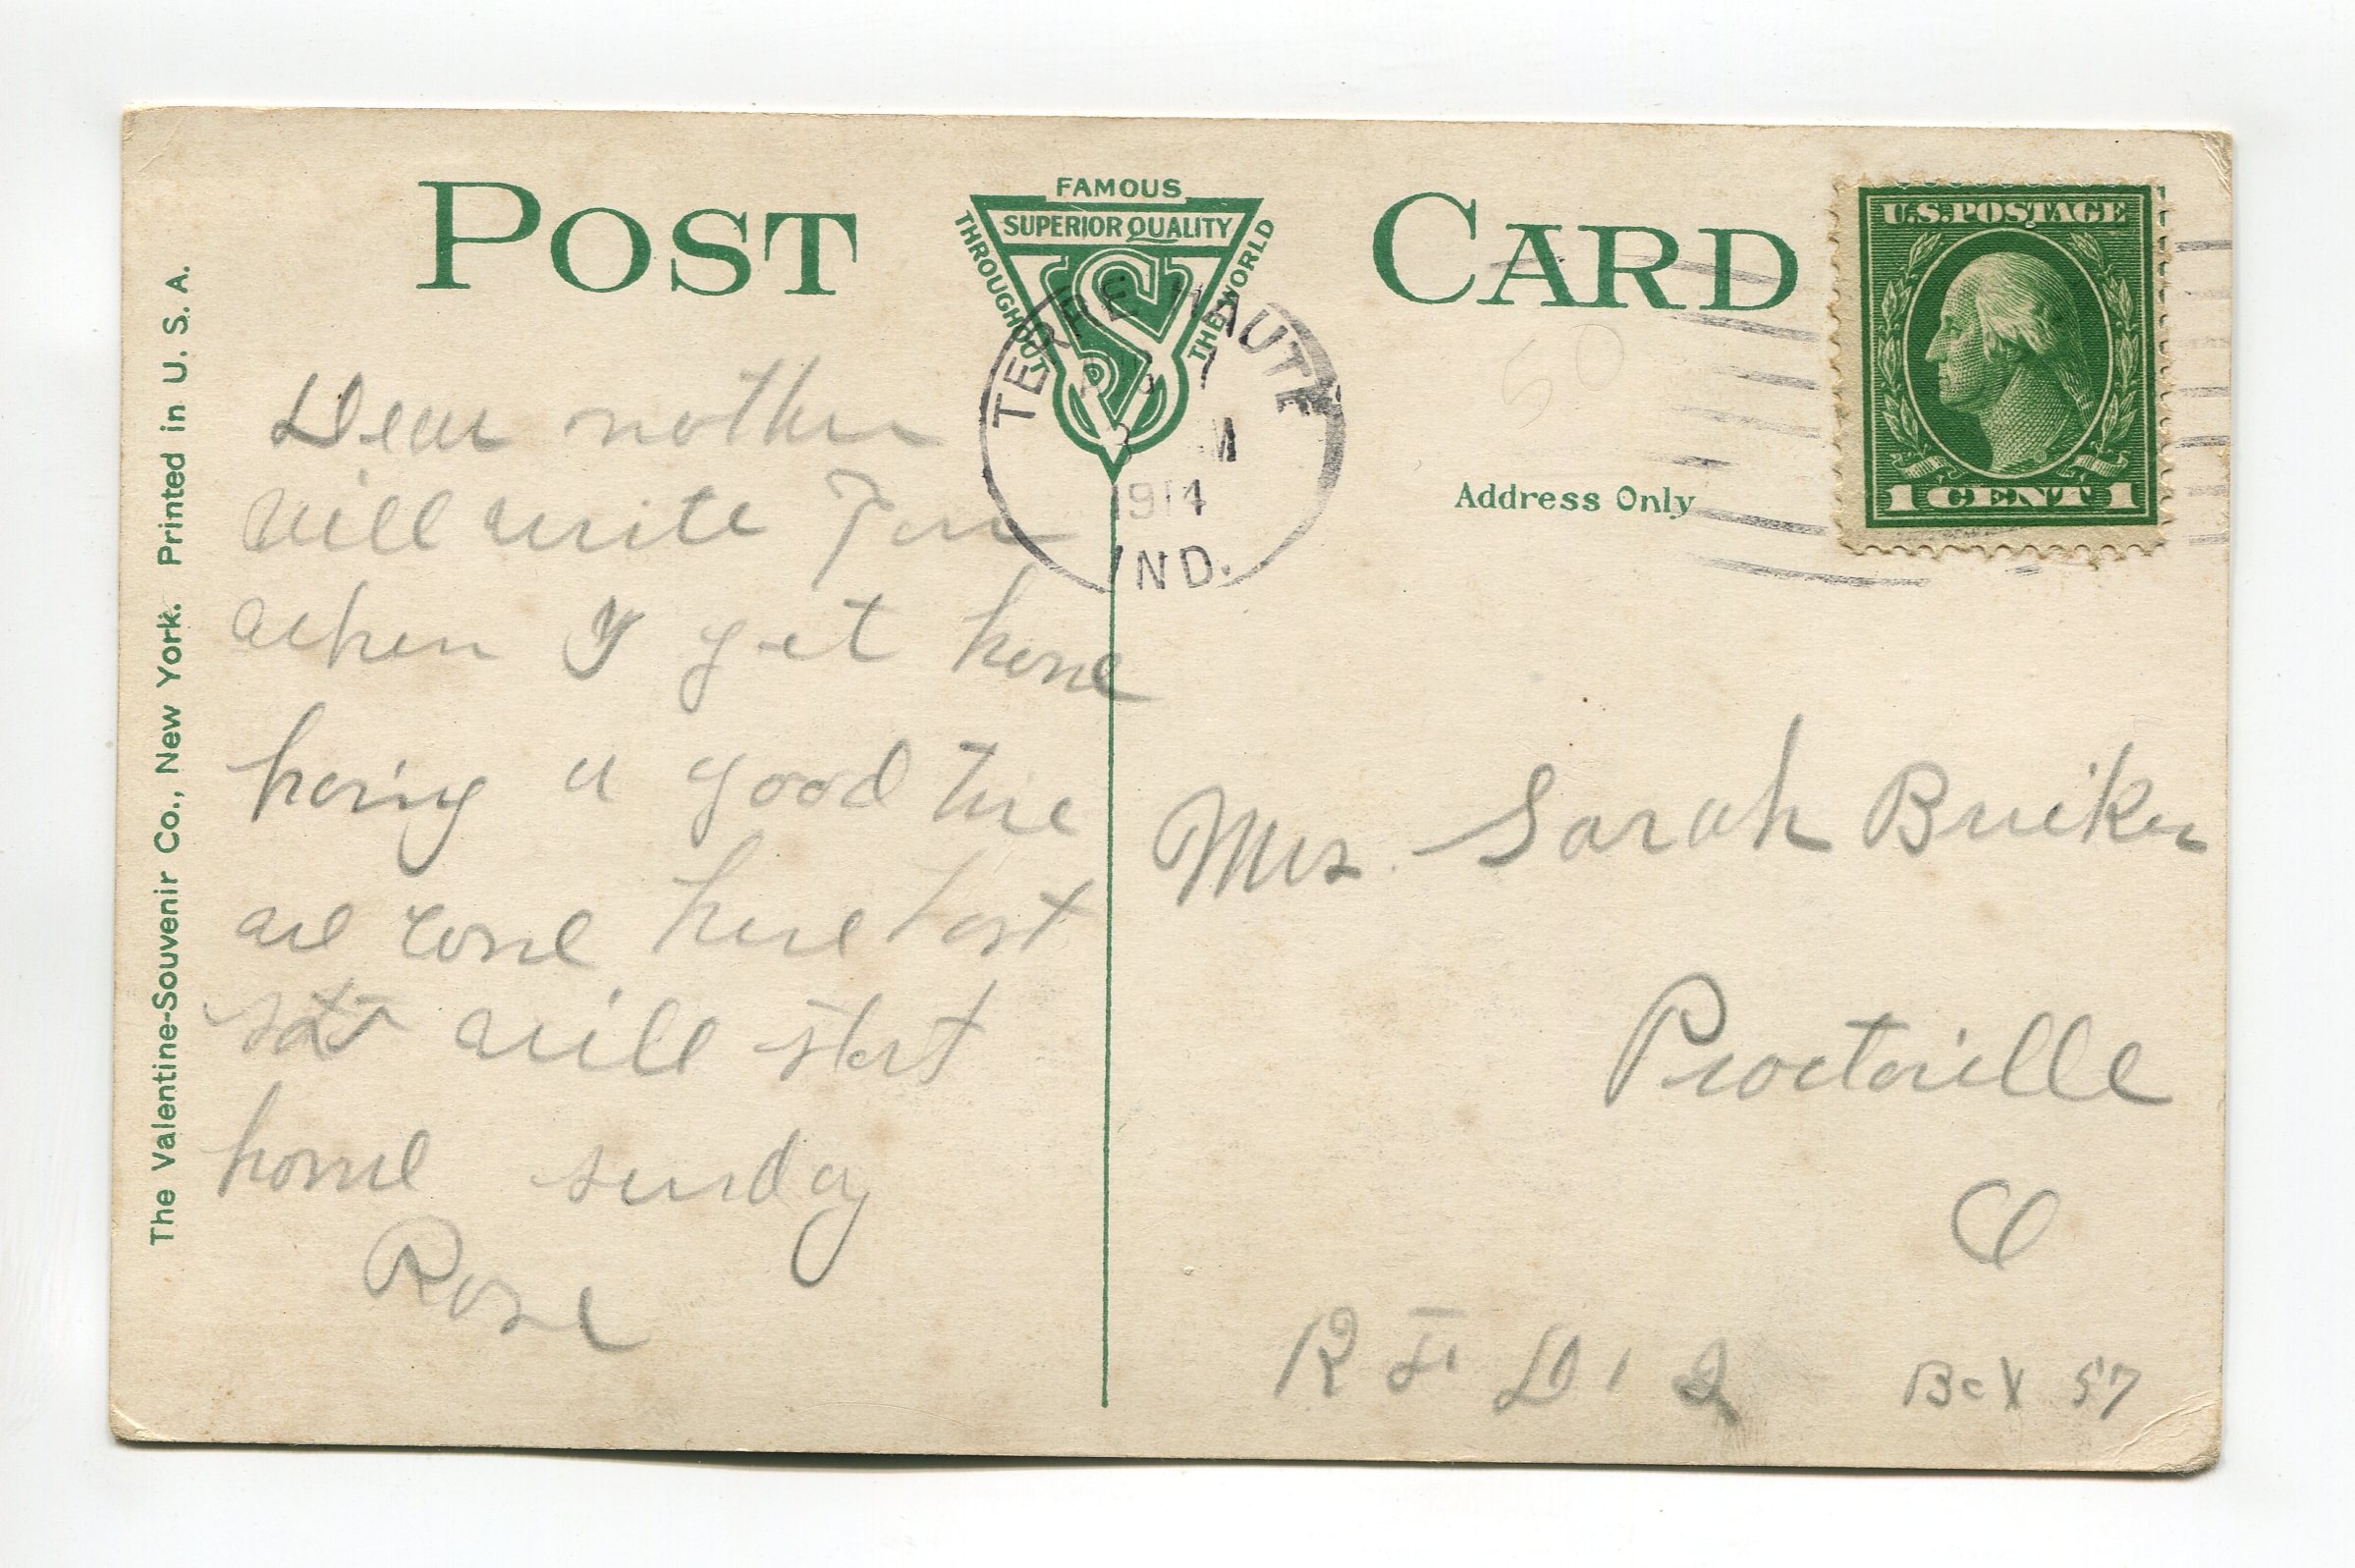 POST CARD
FAMOUS
SUPERIOR QUALITY
THROUGHOUT THE WORLD
TERRE HAUTE
7
3 M
1914
IND.
U.S. POSTAGE
1 CENT 1
50
Address Only
The Valentine-Souvenir Co., New York. Printed in U. S. A.
Dear mother
will write you
when I get home
having a good time
we come here last
sat will start
home sunday
Rose
Mrs. Sarah
Proctorville
O
R F D 2 Box 57